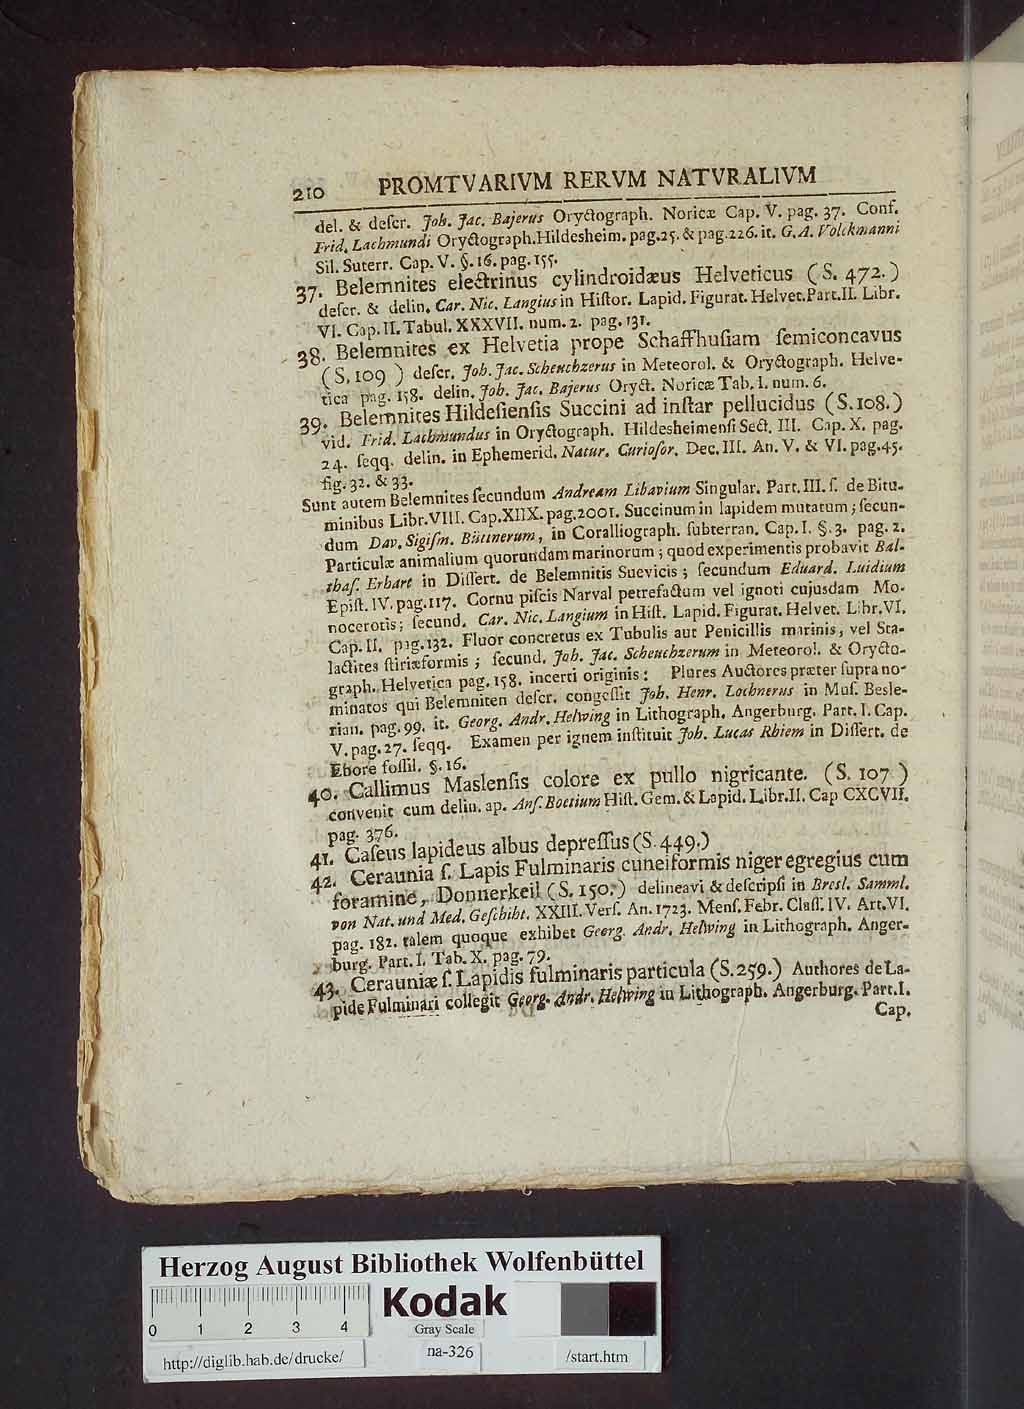 210 PROMTVARIVM RERVM NATVRALIVM
del. & deſcr. Joh. Jac. Bajerus Oryctograph. Noricæ Cap. V. pag. 37. Conf.
Frid. Lachmundi Oryctograph. Hildesheim. pag. 25. & pag. 226. it. G. A. Volckmanni
Sil. Suterr. Cap. V. §. 16. pag. 155.
37. Belemnites electrinus cylindroidæus Helveticus (S. 472.)
deſcr. & delin. Car. Nic. Langius in Hiſtor. Lapid. Figurat. Helvet. Part. II. Libr.
VI. Cap. II. Tabul. XXXVII. num. 2. pag. 131.
38. Belemnites ex Helvetia prope Schaffhuſiam ſemiconcavus
(S. 109 ) deſcr. Joh. Jac. Scheuchzerus in Meteorol. & Oryctograph. Helve-
tica pag. 158. delin. Joh. Jac. Bajerus Oryct. Noricæ Tab. I. num. 6.
39. Belemnites Hildeſienſis Succini ad inſtar pellucidus (S. 108.)
vid. Frid. Lachmundus in Oryctograph. Hildesheimenſi Sect. III. Cap. X. pag.
24. ſeqq. delin. in Ephemerid. Natur. Curioſor. Dec. III. An. V. & VI. pag. 45.
fig. 32. & 33.
Sunt autem Belemnites ſecundum Andream Libavium Singular. Part. III. ſ. de Bitu-
minibus Libr. VIII. Cap. XIIX. pag. 2001. Succinum in lapidem mutatum; ſecun-
dum Dav. Sigiſm. Büttnerum, in Coralliograph. ſubterran. Cap. I. §. 3. pag. 2.
Particulæ animalium quorundam marinorum; quod experimentis probavit Bal-
thaſ. Erhart in Diſſert. de Belemnitis Suevicis; ſecundum Eduard. Luidium
Epiſt. IV. pag. 117. Cornu piſcis Narval petrefactum vel ignoti cujusdam Mo-
nocerotis; ſecund. Car. Nic. Langium in Hiſt. Lapid. Figurat. Helvet. Libr. VI.
Cap. II. pag. 132. Fluor concretus ex Tubulis aut Penicillis marinis, vel Sta-
lactites ſtiriæformis; ſecund. Joh. Jac. Scheuchzerum in Meteorol. & Orycto-
graph. Helvetica pag. 158. incerti originis: Plures Auctores præter ſupra no-
minatos qui Belemniten deſcr. congeſſit Joh. Henr. Lochnerus in Muſ. Besle-
rian. pag. 99. it. Georg. Andr. Helwing in Lithograph. Angerburg. Part. I. Cap.
V. pag. 27. ſeqq. Examen per ignem inſtituit Joh. Lucas Rhiem in Diſſert. de
Ebore foſſil. §. 16.
40. Callimus Maslenſis colore ex pullo nigricante. (S. 107 )
convenit cum delin. ap. Anſ. Boetium Hiſt. Gem. & Lapid. Libr. II. Cap CXCVII.
pag. 376.
41. Caſeus lapideus albus depreſſus (S. 449.)
42. Ceraunia ſ. Lapis Fulminaris cuneiformis niger egregius cum
foramine, Donnerkeil (S. 150.) delineavi & deſcripſi in Bresl. Samml.
von Nat. und Med. Geſchiht. XXIII. Verſ. An. 1723. Menſ. Febr. Claſſ. IV. Art. VI.
pag. 182. talem quoque exhibet Georg. Andr. Helwing in Lithograph. Anger-
burg. Part. I. Tab. X. pag. 79.
43. Cerauniæ ſ. Lapidis fulminaris particula (S. 259.) Authores de La-
pide Fulminari collegit Georg. Andr. Helwing in Lithograph. Angerburg. Part. I.
Cap.
Herzog August Bibliothek Wolfenbüttel
Kodak
0 1 2 3 4
Gray Scale
http://diglib.hab.de/drucke/ na-326 /start.htm